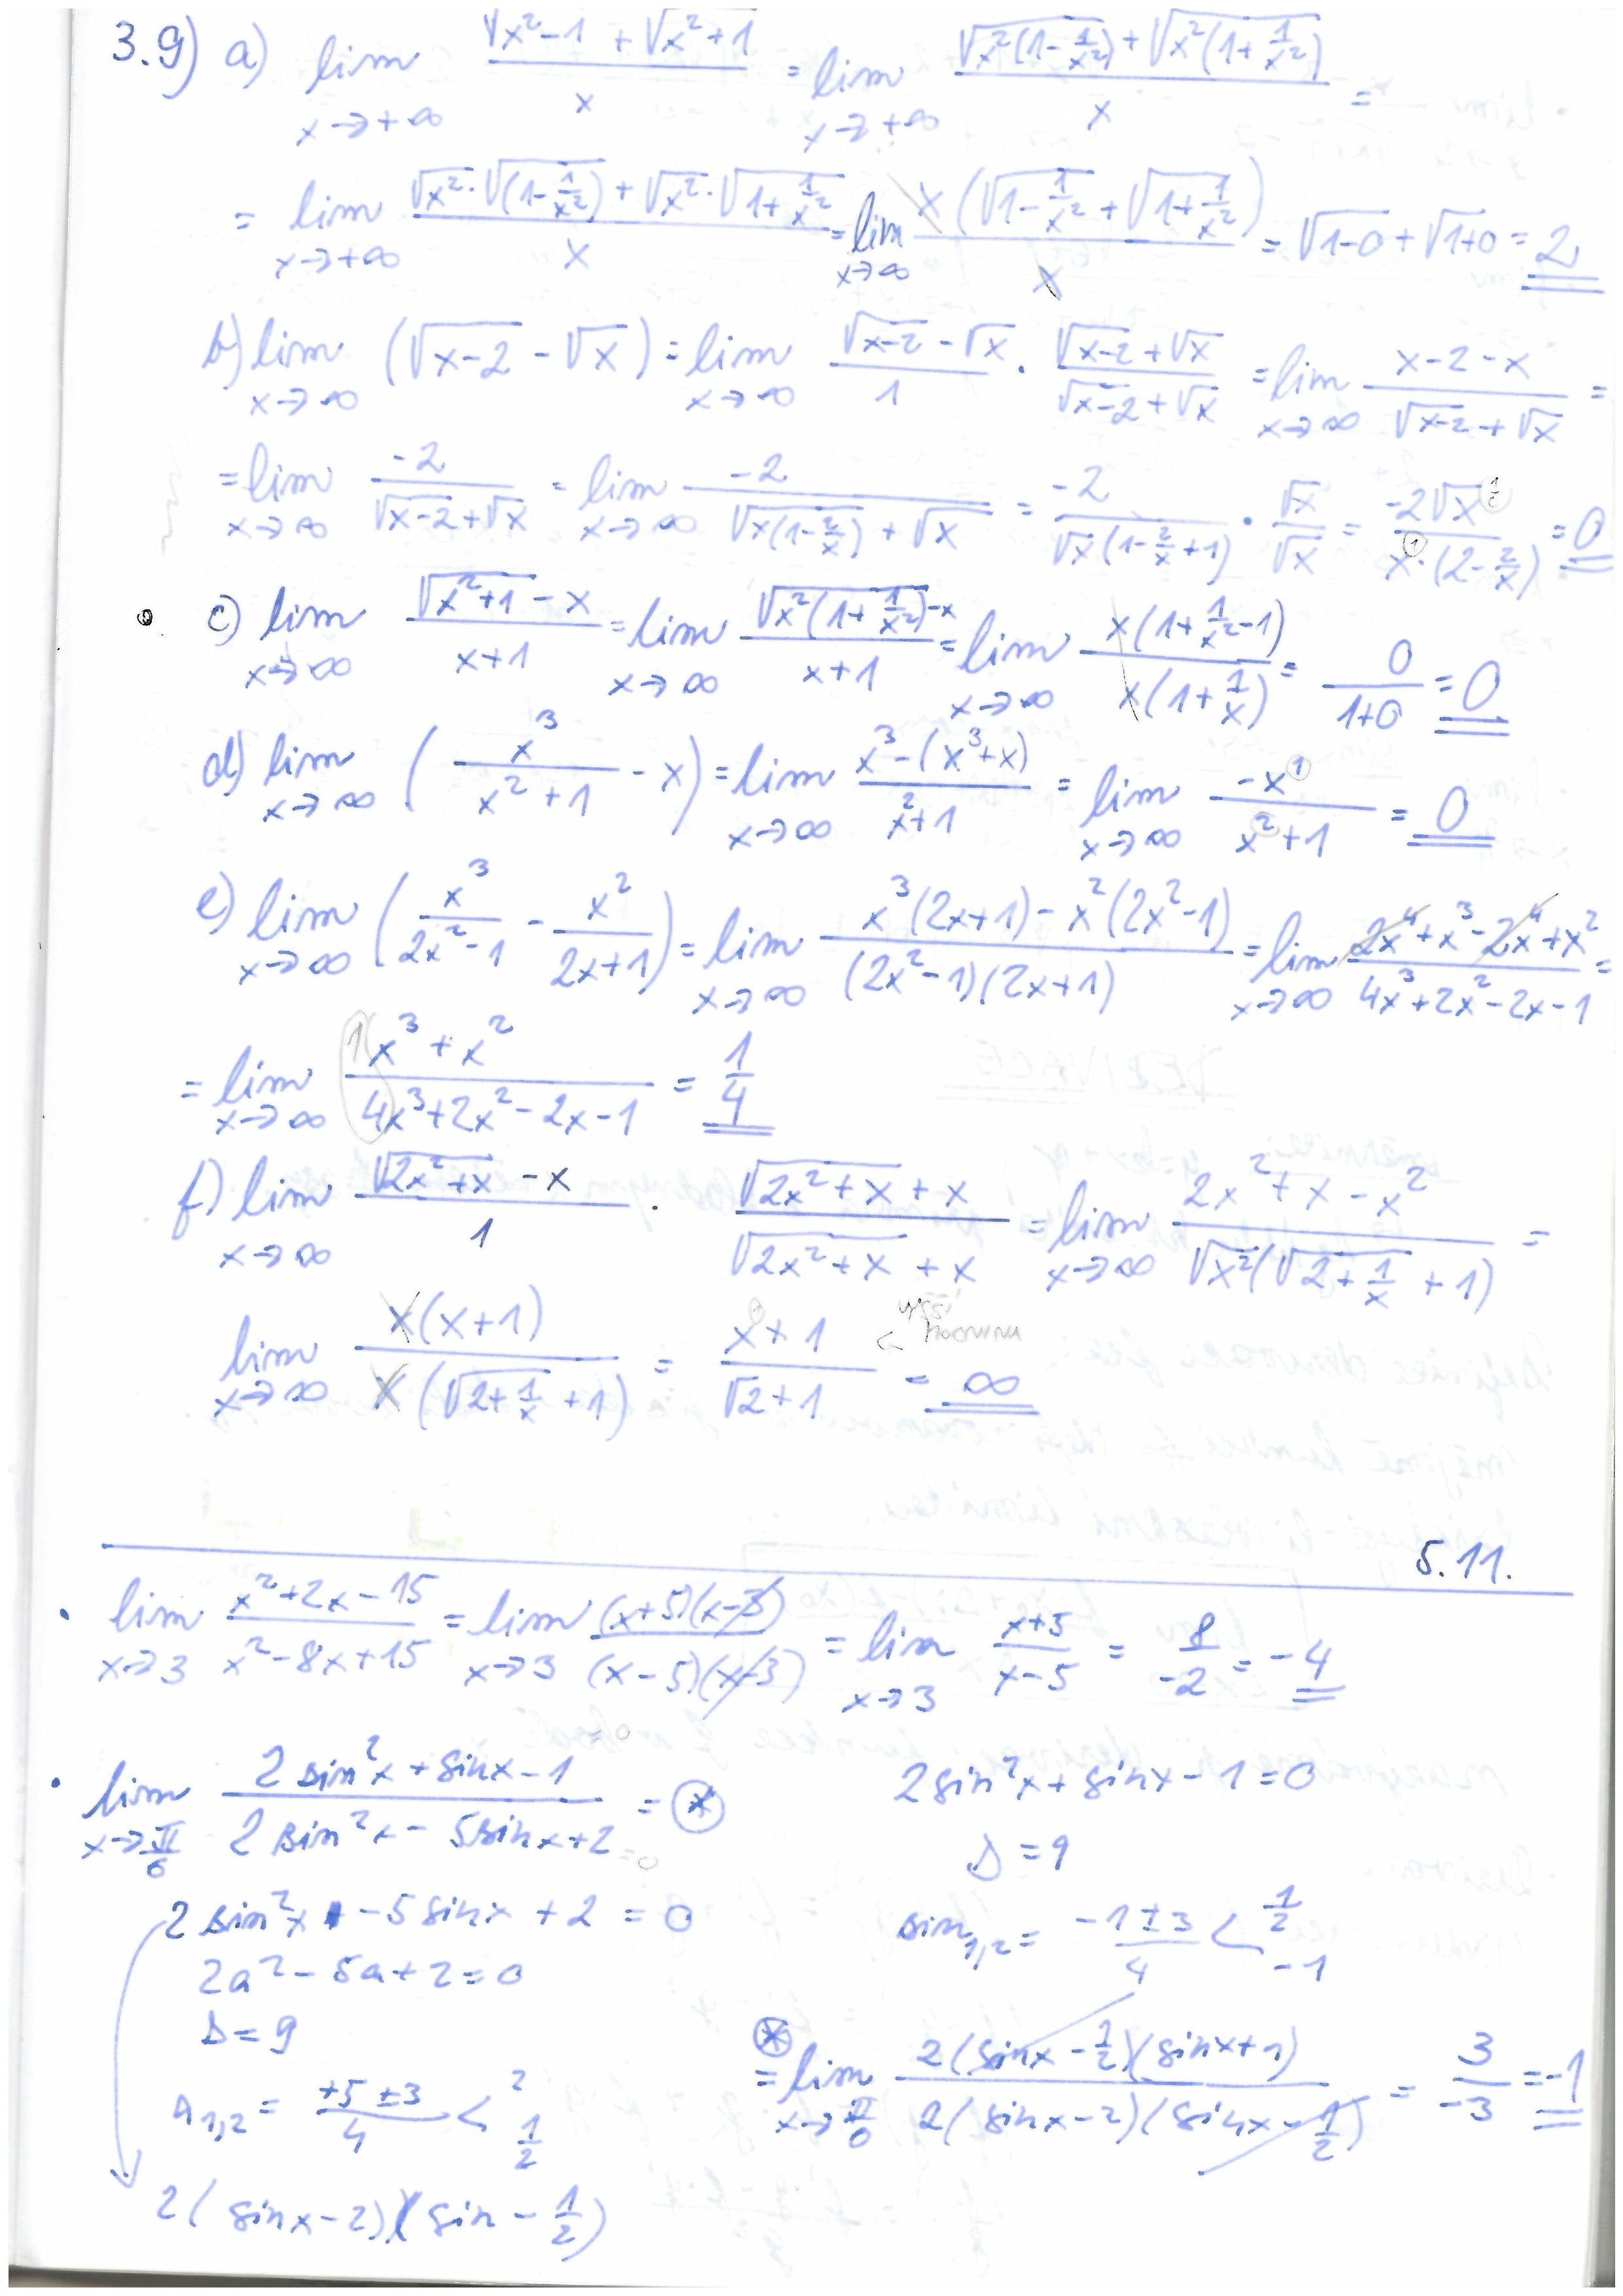 3.9) a) lim x→+∞ (√(x²-1) + √(x²+1))/x = lim x→+∞ (√(x²(1-1/x²)) + √(x²(1+1/x²)))/x =
= lim x→+∞ (√x²·√(1-1/x²) + √x²·√(1+1/x²))/x = lim x→∞ x(√(1-1/x²) + √(1+1/x²))/x = √(1-0) + √(1+0) = 2
b) lim x→∞ (√(x-2) - √x) = lim x→∞ (√(x-2) - √x)/1 · (√(x-2) + √x)/(√(x-2) + √x) = lim x→∞ (x-2-x)/(√(x-2) + √x) =
= lim x→∞ -2/(√(x-2) + √x) = lim x→∞ -2/(√(x(1-2/x)) + √x) = -2/(√x(1-2/x+1)) · √x/√x = -2√x/(x·(2-2/x)) = 0
c) lim x→∞ (√(x²+1) - x)/(x+1) = lim x→∞ (√(x²(1+1/x²)) - x)/(x+1) = lim x→∞ x(1+1/x²-1)/(x(1+1/x)) = 0/(1+0) = 0
d) lim x→∞ (x³/(x²+1) - x) = lim x→∞ (x³-(x³+x))/(x²+1) = lim x→∞ -x¹/(x²+1) = 0
e) lim x→∞ (x³/(2x²-1) - x²/(2x+1)) = lim x→∞ (x³(2x+1) - x²(2x²-1))/((2x²-1)(2x+1)) = lim x→∞ (2x⁴+x³-2x⁴+x²)/(4x³+2x²-2x-1) =
= lim x→∞ (1x³+x²)/(4x³+2x²-2x-1) = 1/4
f) lim x→∞ (√(2x²+x) - x)/1 · (√(2x²+x) + x)/(√(2x²+x) + x) = lim x→∞ (2x²+x-x²)/(√x²(√(2+1/x) + 1)) =
lim x→∞ x(x+1)/(x(√(2+1/x) + 1)) = (x+1)/(√2+1) = ∞
5.11.
· lim x→3 (x²+2x-15)/(x²-8x+15) = lim x→3 (x+5)(x-3)/((x-5)(x-3)) = lim x→3 (x+5)/(x-5) = 8/-2 = -4
· lim x→π/6 (2 sin²x + sinx - 1)/(2 sin²x - 5 sinx + 2) = ⊛
2 sin²x + sinx - 1 = 0
D = 9
sin₁,₂ = (-1±3)/4 < 1/2 -1
2 sin²x - 5 sinx + 2 = 0
2a² - 5a + 2 = 0
D = 9
a₁,₂ = (+5±3)/4 < 2 1/2
2(sinx-2)(sin - 1/2)
⊛ = lim x→π/6 2(sinx - 1/2)(sinx+1)/(2(sinx-2)(sinx - 1/2)) = 3/-3 = -1